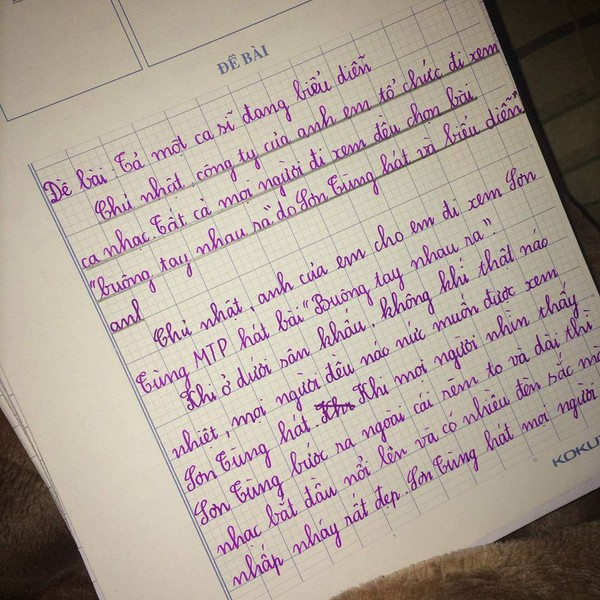 ĐỀ BÀI
Đề bài: Tả một ca sĩ đang biểu diễn
Chủ nhật, công ty của anh em tổ chức đi xem
ca nhạc. Tất cả mọi người đi xem đều chọn bài
"buông tay nhau ra" do Sơn Tùng hát và biểu diễn"
anh
Chủ nhật, anh của em cho em đi xem Sơn
Tùng MTP hát bài "Buông tay nhau ra".
Khi ở dưới sân khấu, không khí thật náo
nhiệt, mọi người đều náo nức muốn được xem
Sơn Tùng hát. Khi mọi người nhìn thấy
Sơn Tùng bước ra ngoài cái rèm to và dài thì
nhạc bắt đầu nổi lên và có nhiều đèn sắc mà
nhấp nháy rất đẹp. Sơn Tùng hát mọi người
KOKU